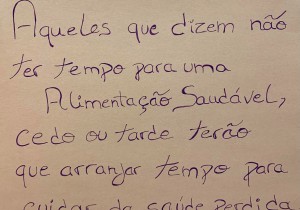 Aqueles que dizem não
ter tempo para uma
Alimentação Saudável,
cedo ou tarde terão
que arranjar tempo para
cuidar da saúde perdida